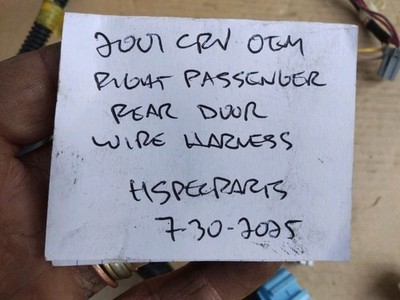 2001 CRV OEM
RIGHT PASSENGER
REAR DOOR
WIRE HARNESS
HSPECPARTS
7-30-2025